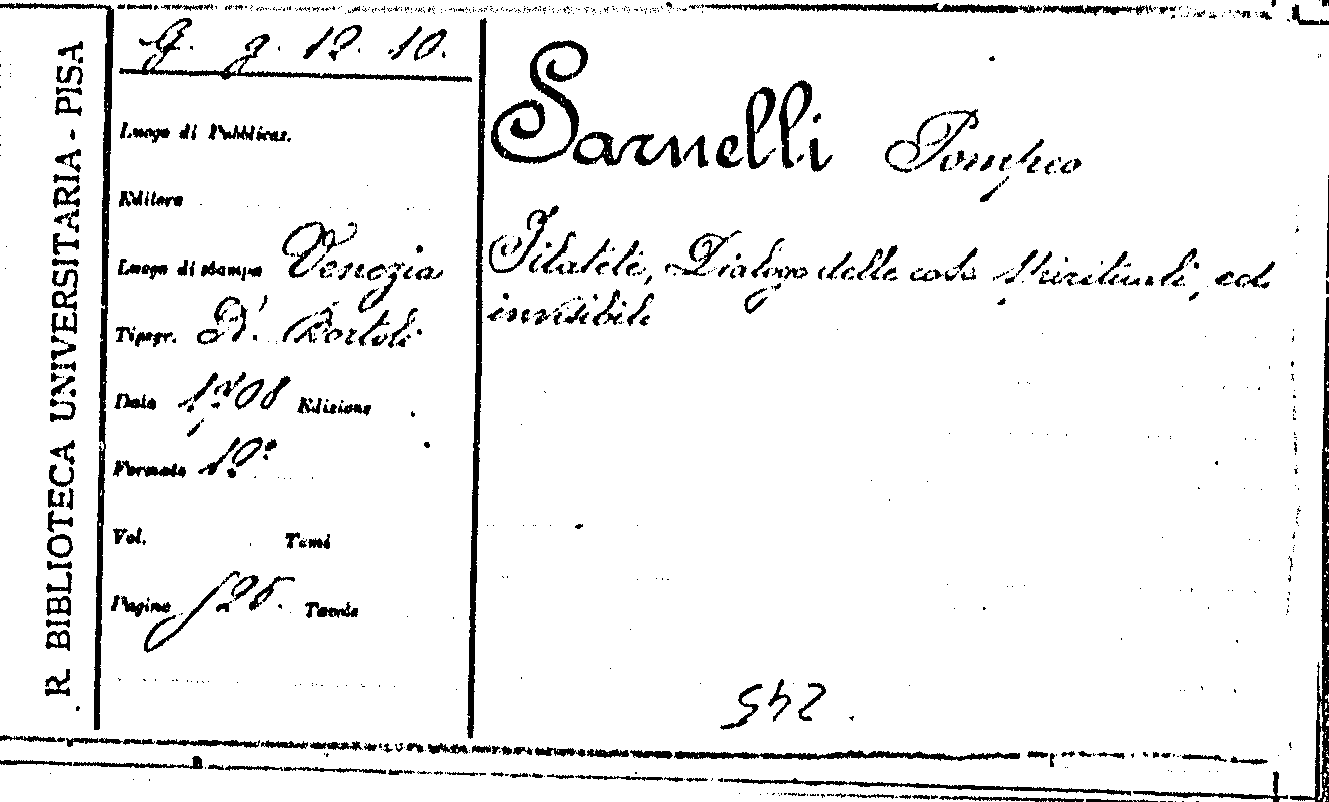 R. BIBLIOTECA UNIVERSITARIA - PISA
G. g. 12. 10.
Luogo di Pubblicaz.
Editore
Luogo di stampa Venezia
Tipogr. A. Bortoli
Data 1708 Edizione
Formato 12°
Vol. Tomi
Pagine 526. Tavole
Sarnelli Pompeo
Filatete, Dialogo delle cose spirituali, ed
invisibili
542